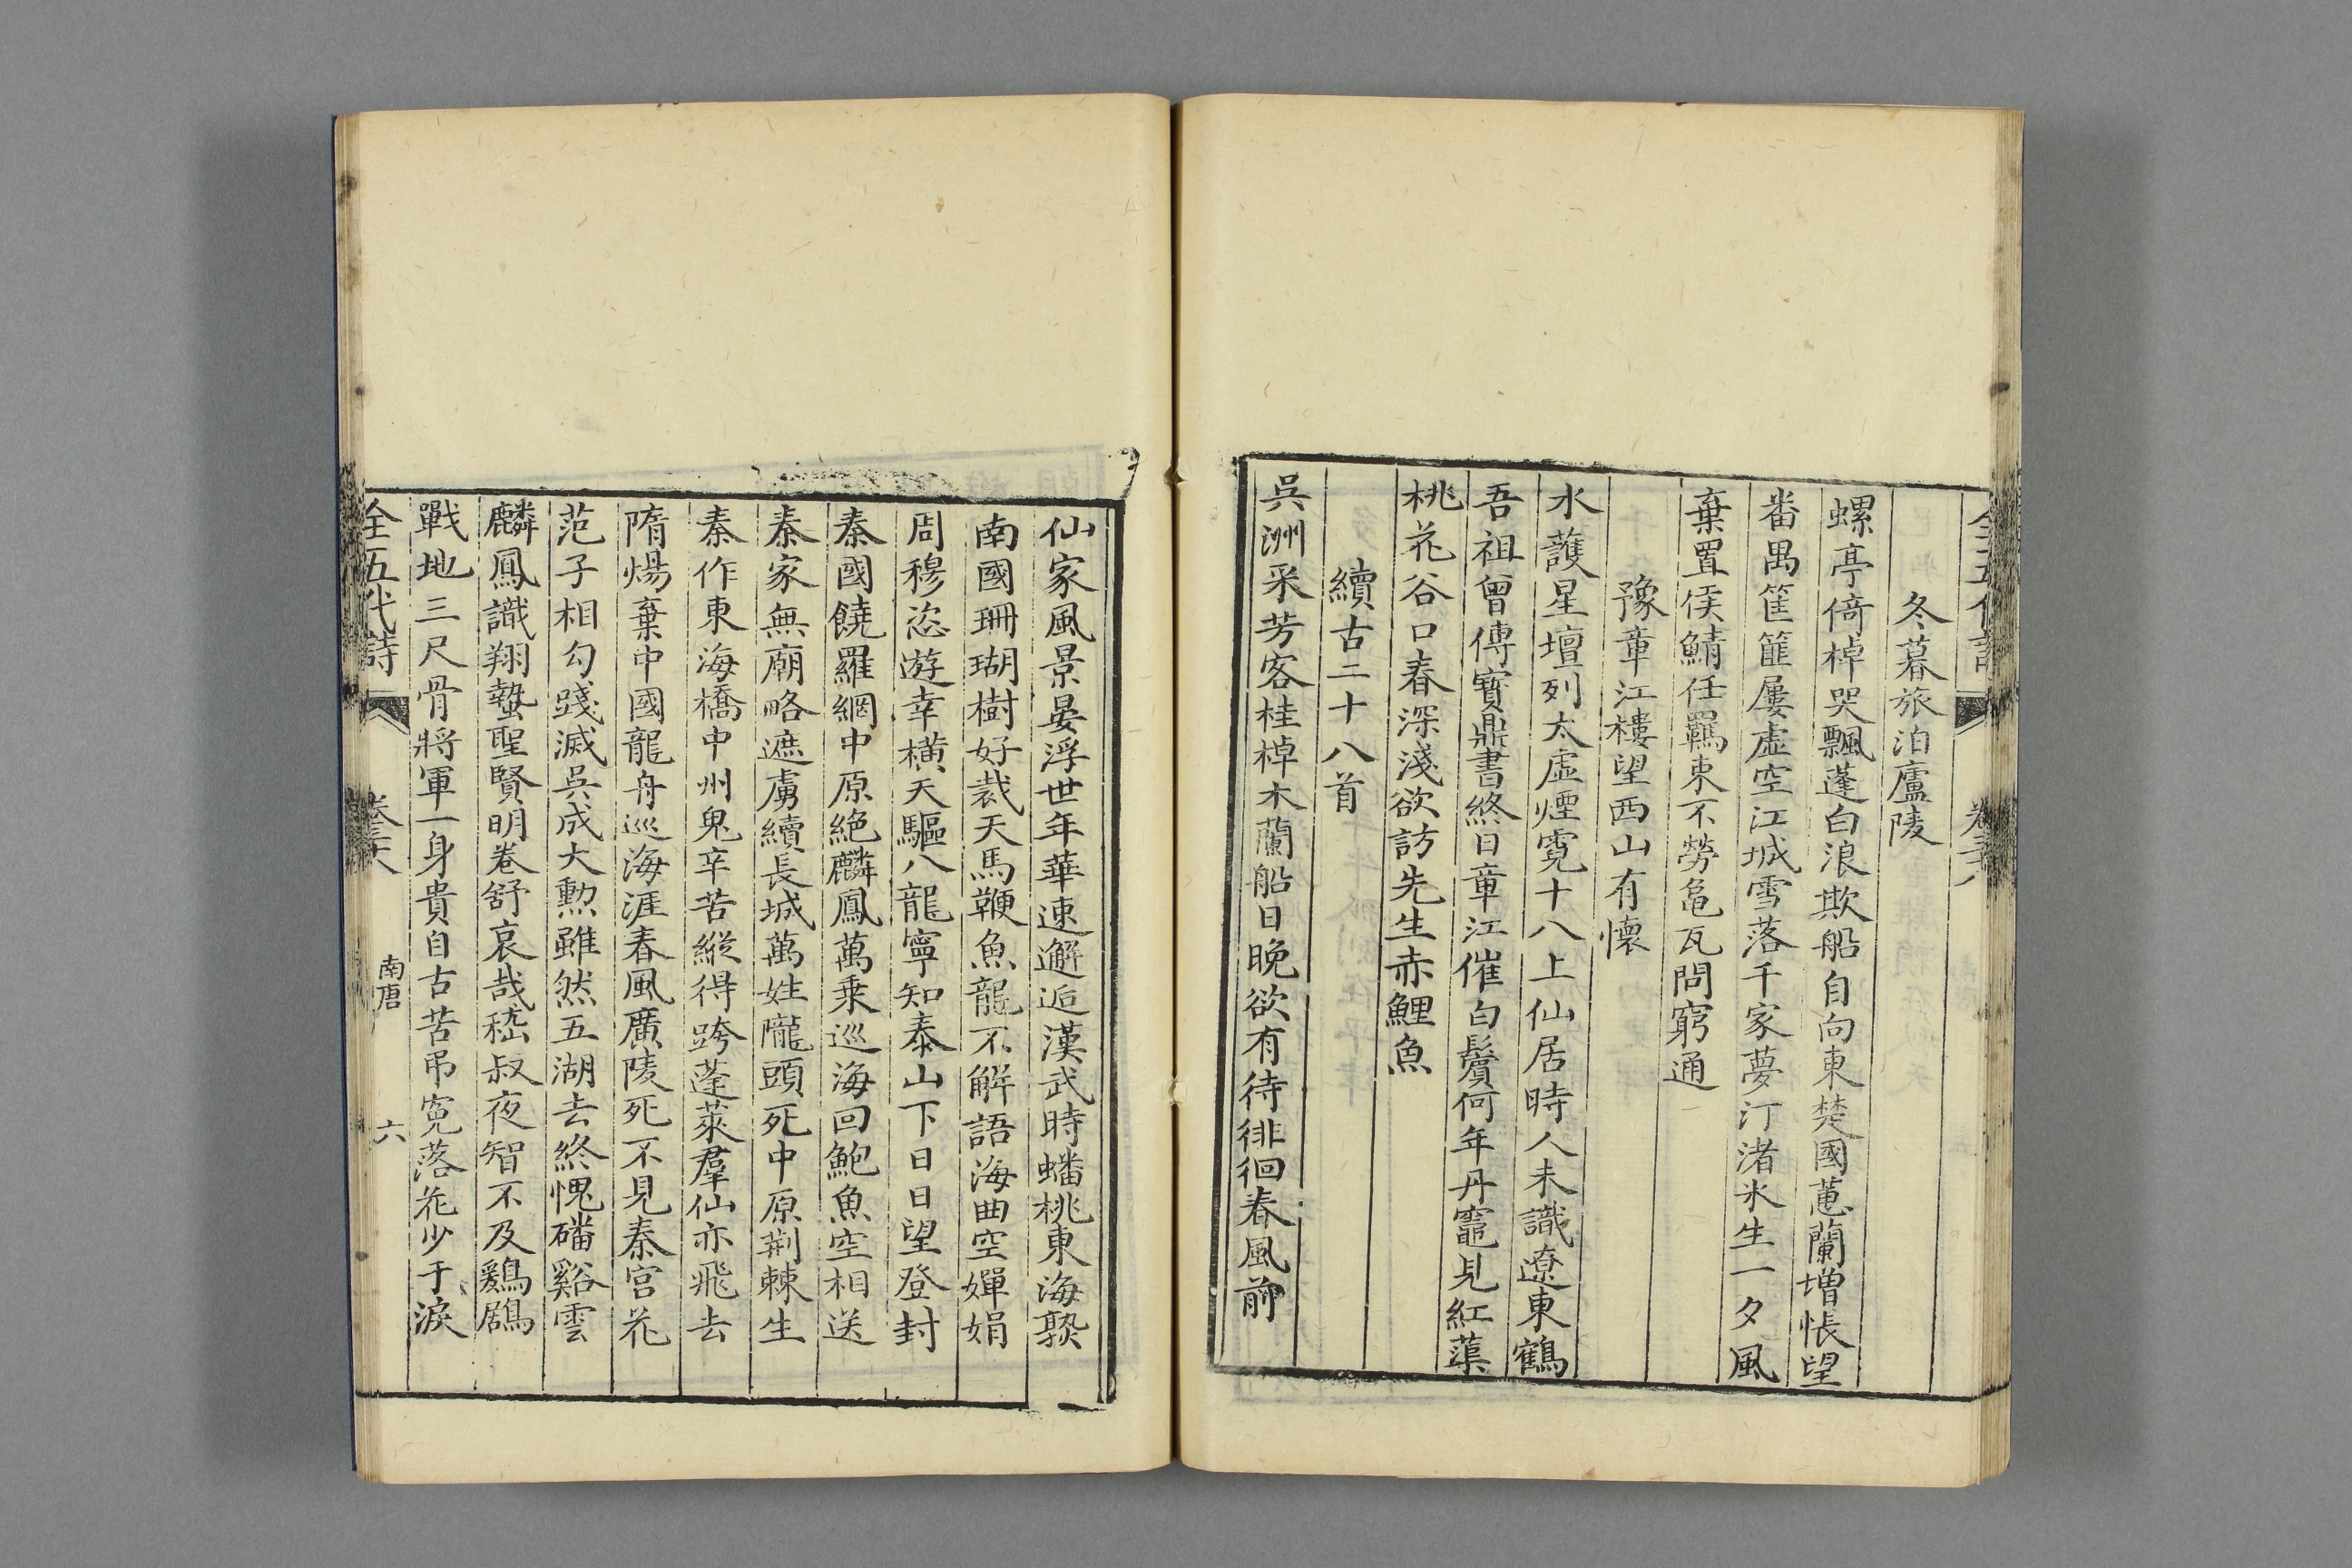 冬暮旅泊廬陵
螺亭倚棹哭飄蓬白浪欺船自向東楚國蕙蘭增悵望
番禺筐篚屢虛空江城雪落千家夢汀渚氷生一夕風
棄置侯鯖任羈束不勞龜瓦問窮通
豫章江樓望西山有懷
水護星壇列太虛煙霓十八上仙居時人未識遼東鶴
吾祖曾傳寶鼎書終日章江催白鬢何年丹竈見紅蕖
桃花谷口春深淺欲訪先生赤鯉魚
續古二十八首
吳洲采芳客桂棹木蘭船日晚欲有待徘徊春風前
仙家風景晏浮世年華速邂逅漢武時蟠桃東海熟
南國珊瑚樹好裁天馬鞭魚龍不解語海曲空嬋娟
周穆恣遊幸橫天驅八龍寧知泰山下日日望登封
秦國饒羅網中原絕麟鳳萬乘巡海回鮑魚空相送
秦家無廟略遮虜續長城萬姓隴頭死中原荆棘生
秦作東海橋中州鬼辛苦縱得跨蓬萊羣仙亦飛去
隋煬棄中國龍舟巡海涯春風廣陵死不見秦宮花
范子相勾踐滅吳成大勲雖然五湖去終愧磻谿雲
麟鳳識翔蟄聖賢明卷舒哀哉嵇叔夜智不及鶢鶋
戰地三尺骨將軍一身貴自古苦弔寃落花少于淚
全五代詩
卷三十八
南唐
六